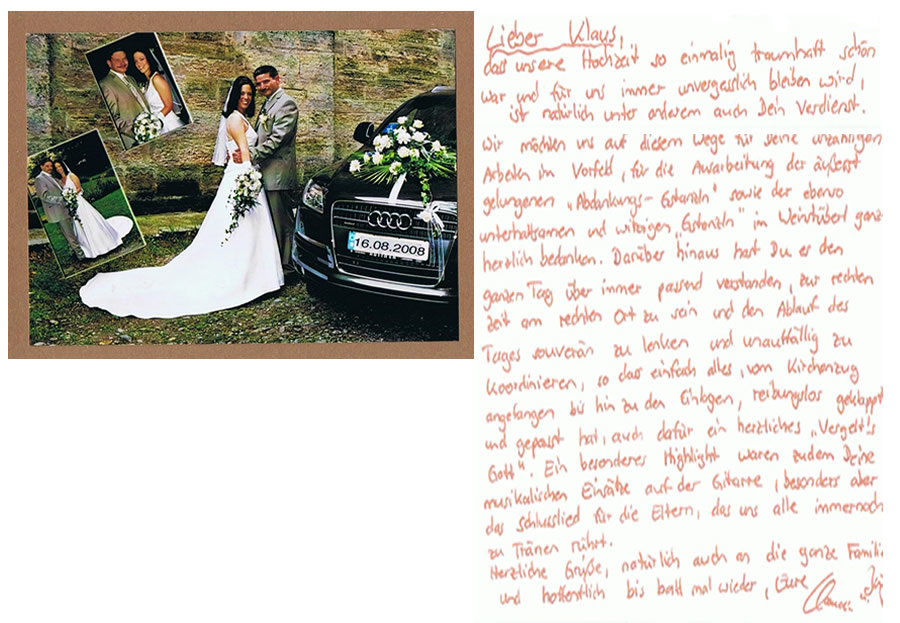 16.08.2008
Lieber Klaus,
das unsere Hochzeit so einmalig traumhaft schön
war und für uns immer unvergesslich bleiben wird,
ist natürlich unter anderem auch Dein Verdienst.
Wir möchten uns auf diesem Wege für Deine unzähligen
Arbeiten im Vorfeld, für die Ausarbeitung der äußerst
gelungenen „Abdankungs- Gstanzln" sowie der ebenso
unterhaltsamen und witzigen „Gstanzln" im Weinstüberl ganz
herzlich bedanken. Darüber hinaus hast Du es den
ganzen Tag über immer passend verstanden, zur rechten
Zeit am rechten Ort zu sein und den Ablauf des
Tages souverän zu lenken und unauffällig zu
koordinieren, so das einfach alles, vom Kirchenzug
angefangen bis hin zu den Einlagen, reibungslos geklappt
und gepasst hat, auch dafür ein herzliches „Vergelt's
Gott". Ein besonderes Highlight waren zudem Deine
musikalischen Einsätze auf der Gitarre, besonders aber
das Schlusslied für die Eltern, das uns alle immernoch
zu Tränen rührt.
Herzliche Grüße, natürlich auch an die ganze Famili
und hoffentlich bis bald mal wieder, Eure